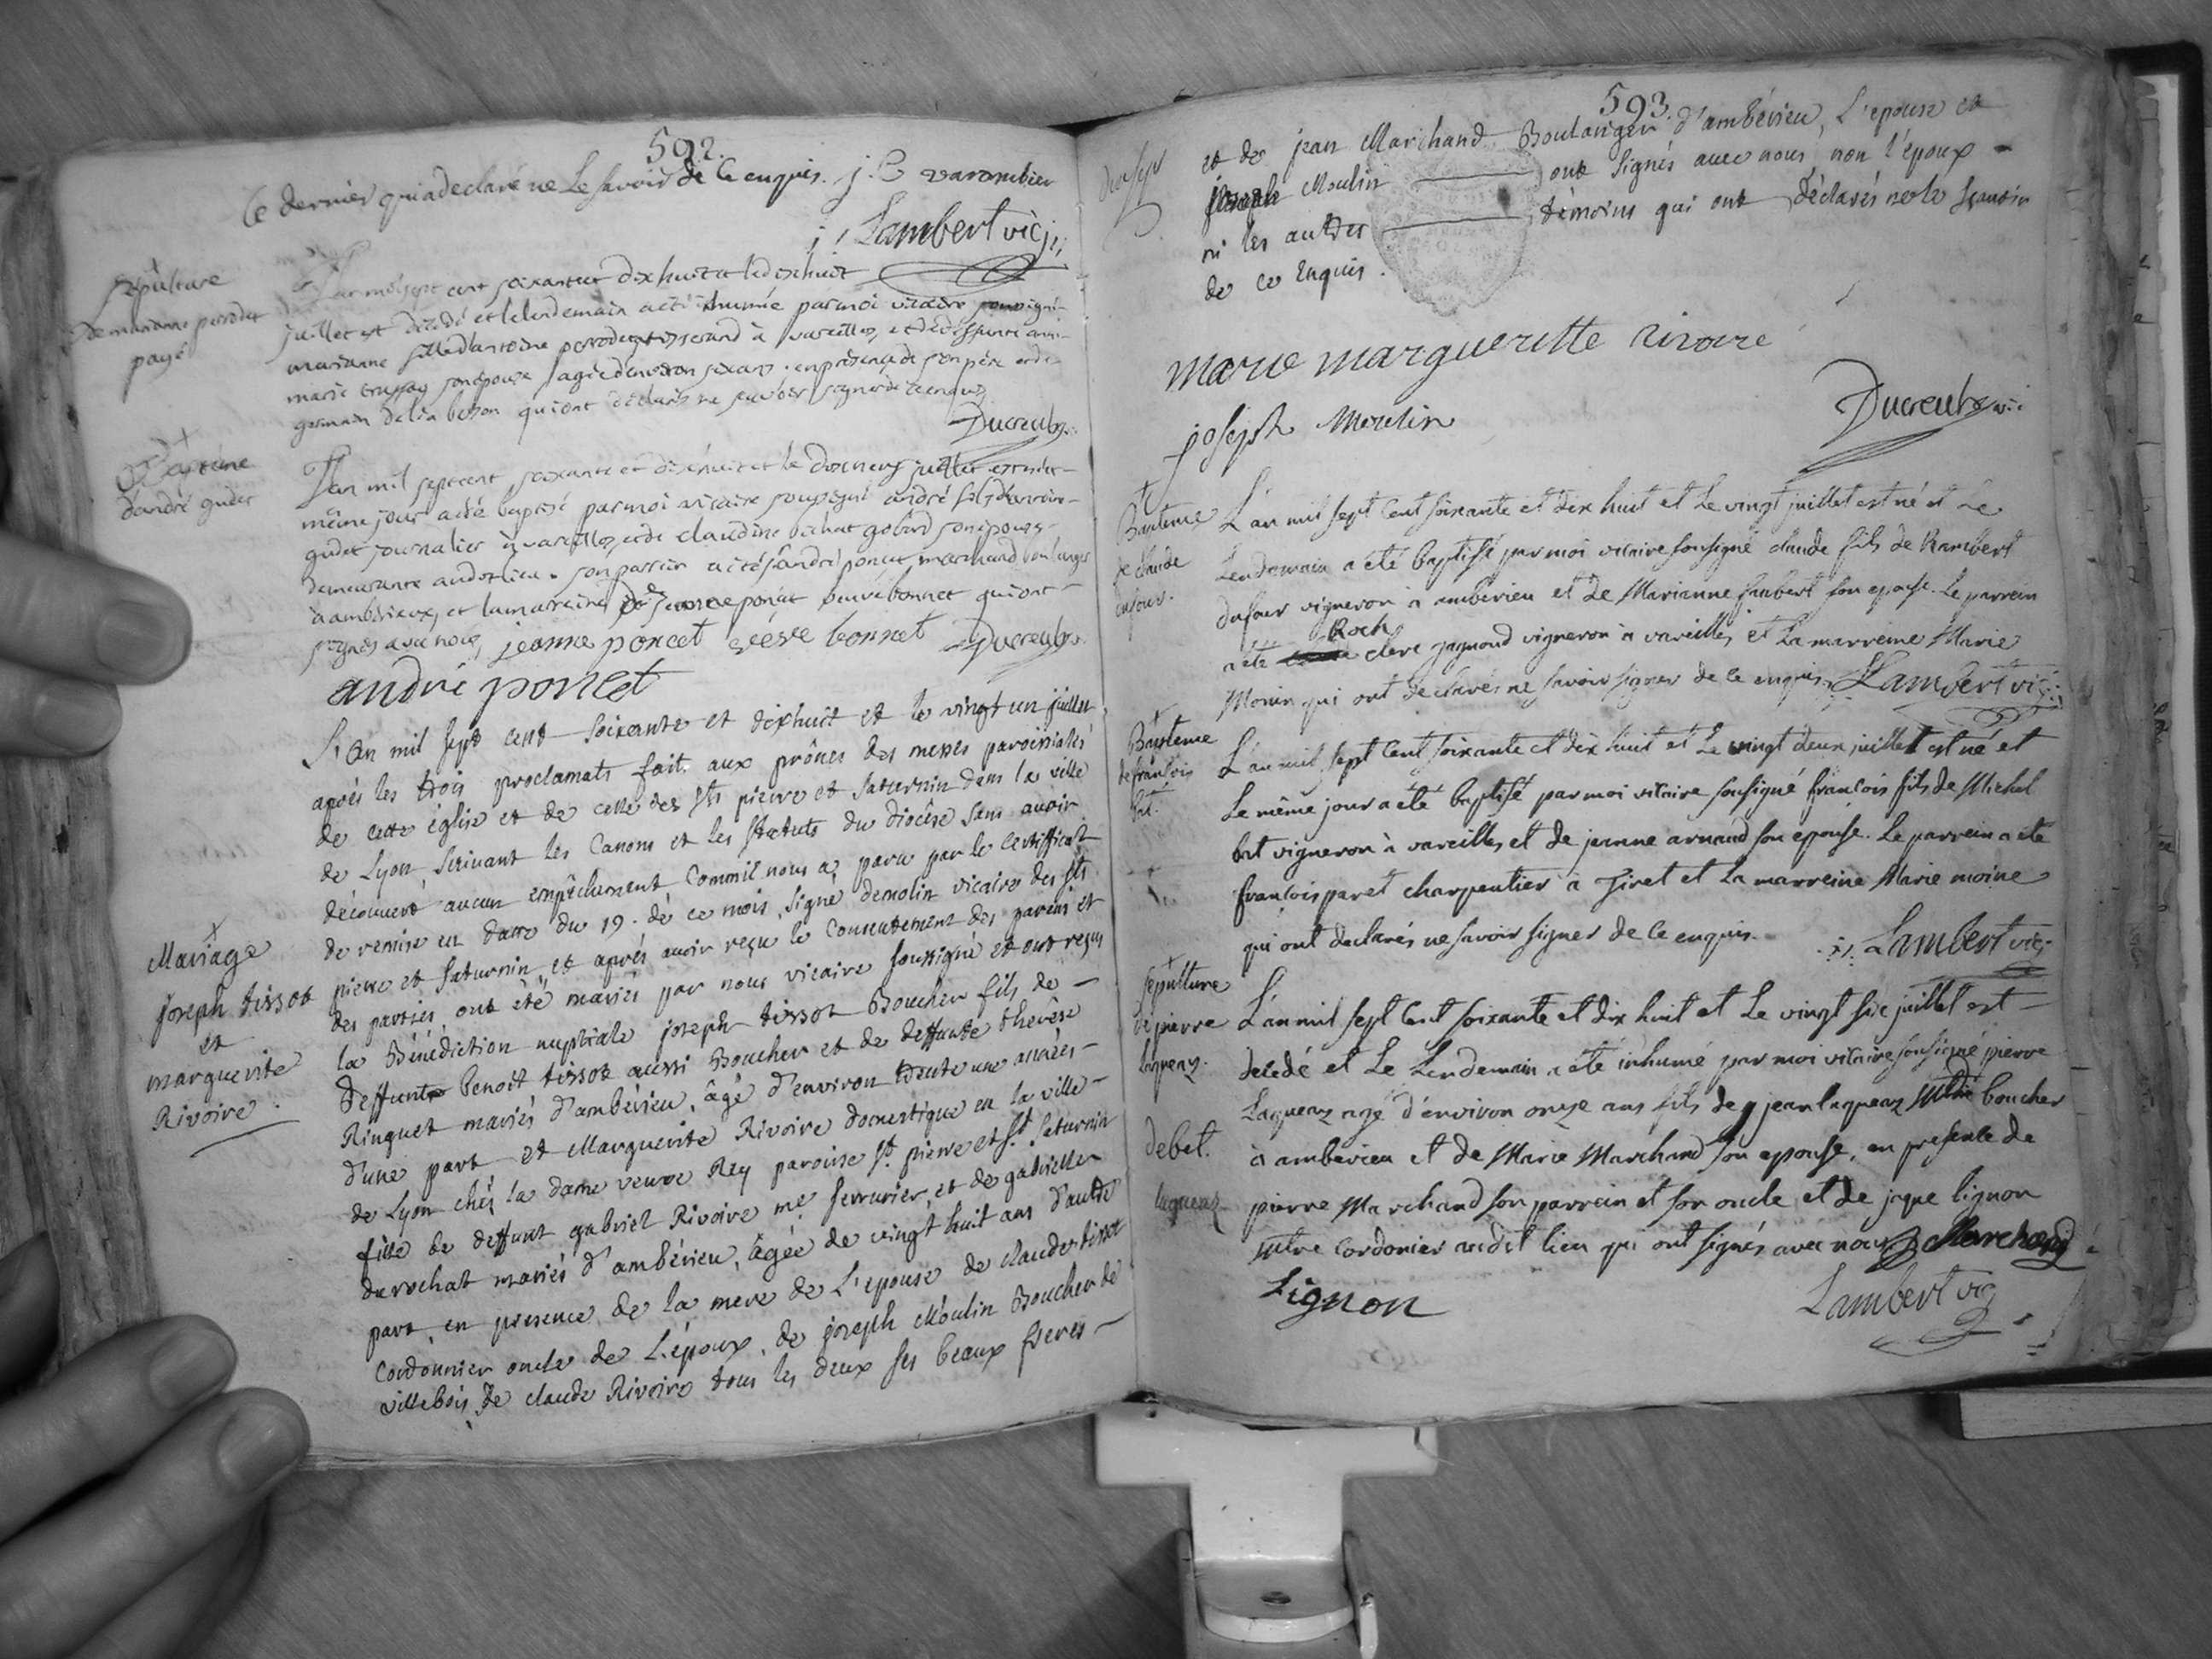 592.
Ce dernier qui a declaré ne Le savoir de Ce enquis. j. C varambier
j. Lambert vic.
sepulture
de marianne perrodet
payé
L'an mil sept cent soixante et dix huit et le dix huit
juillet est décédé et le lendemain a été inhumée par moi vicaire soussigné
marianne fille d'antoine perrodet tisserand à vareilles, et de deffunte anne
marie son épouse agée d'environ six ans. en présence de son père et de
germain qui ont déclarés ne savoir signer de ce enquis
Ducreux
Baptême
d'andré gudet
L'an mil sept cent soixante et dix huit et le dix neuf juillet est né et le
même jour a été baptisé par moi vicaire soussigné andré fils d'antoine
gudet journalier à vareilles, et de claudine gobard son épouse
demeurante audit lieu. son parrein a été andré poncet marchand boulanger
à ambérieux, et la marreine jeanne poncet veuve bonnet qui ont
signés avec nous, jeanne poncet veuve bonnet Ducreux
andré poncet
Mariage
joseph tissot
et
marguerite
Rivoire.
L'an mil sept cent soixante et dixhuit et le vingt un juillet
après les trois proclamats fait aux prônes des messes paroissiales
de cette église et de celle des Sts pierre et Saturnin dans la ville
de Lyon, Suivant les Canons et les Statuts du diocèse sans avoir
découvert aucun empêchement Comm'il nous a paru par le Certifficat
de remise en datte du 19. de ce mois, signé demolin vicaire des sts
pierre et Saturnin, et après avoir reçu le Consentement des parens et
des parties, ont été mariés par nous vicaire soussigné et ont reçus
la Bénédiction nuptiale joseph tissot Boucher fils de
deffunt Benoit tissot aussi Boucher et de deffunte thérèse
Ringuet mariés d'ambérieu, âgé d'environ trente une années
d'une part et Marguerite Rivoire domestique en la ville
de Lyon chés la dame veuve Rey paroisse St. pierre et St. Saturnin
fille de deffunt gabriel Rivoire me serrurier, et de gabrielle
durochat mariés d'ambérieu, âgée de vingt huit ans d'autre
part, en presence de la mere de L'epouse de claude tissot
Cordonnier oncle de L'époux, de joseph Moulin Boucher de
villebois, de claude Rivoire tous les deux ses beaux freres
593.
et de jean Marchand Boulanger d'ambérieu, L'epouse et
joseph Moulin ont signés avec nous non l'époux
ni les autres témoins qui ont déclarés ne le sçavoir
de ce Enquis.
marie margueritte rivoire
joseph Moulin
Ducreux vic.
Bapteme
de claude
dufour.
L'an mil sept Cent soixante et dix huit et Le vingt juillet est né et Le
Lendemain a été baptisé par moi vicaire soussigné claude fils de Rambert
dufour vigneron à ambérieu et de Marianne jaubert son epouse. Le parrein
Roch
a été clere jagnoud vigneron à vareilles, et La marreine Marie
Monin qui ont declarés ne savoir signer de ce enquis. Lambert vic.
Bapteme
de françois
bat.
L'an mil sept Cent soixante et dix huit et Le vingt deux juillet est né et
Le même jour a été baptisé par moi vicaire soussigné françois fils de Michel
bat vigneron à vareilles et de jeanne arnaud son epouse. Le parrein a été
françois paret charpentier à Tiret et La marreine Marie moine
qui ont declarés ne savoir signer de Ce enquis. Lambert vic.
Sepulture
de pierre
laqueaz.
debet.
laqueaz
L'an mil sept Cent soixante et dix huit et Le vingt six juillet est
decedé et Le Lendemain a été inhumé par moi vicaire soussigné pierre
Laqueaz agé d'environ onze ans fils de jean laqueaz Mtre boucher
à ambérieu et de Marie Marchand son epouse, en presence de
pierre Marchand son parrein et son oncle, et de jaque lignon
Mtre Cordonier audit lieu qui ont signés avec nous. Marchand
Lignon
Lambert vic